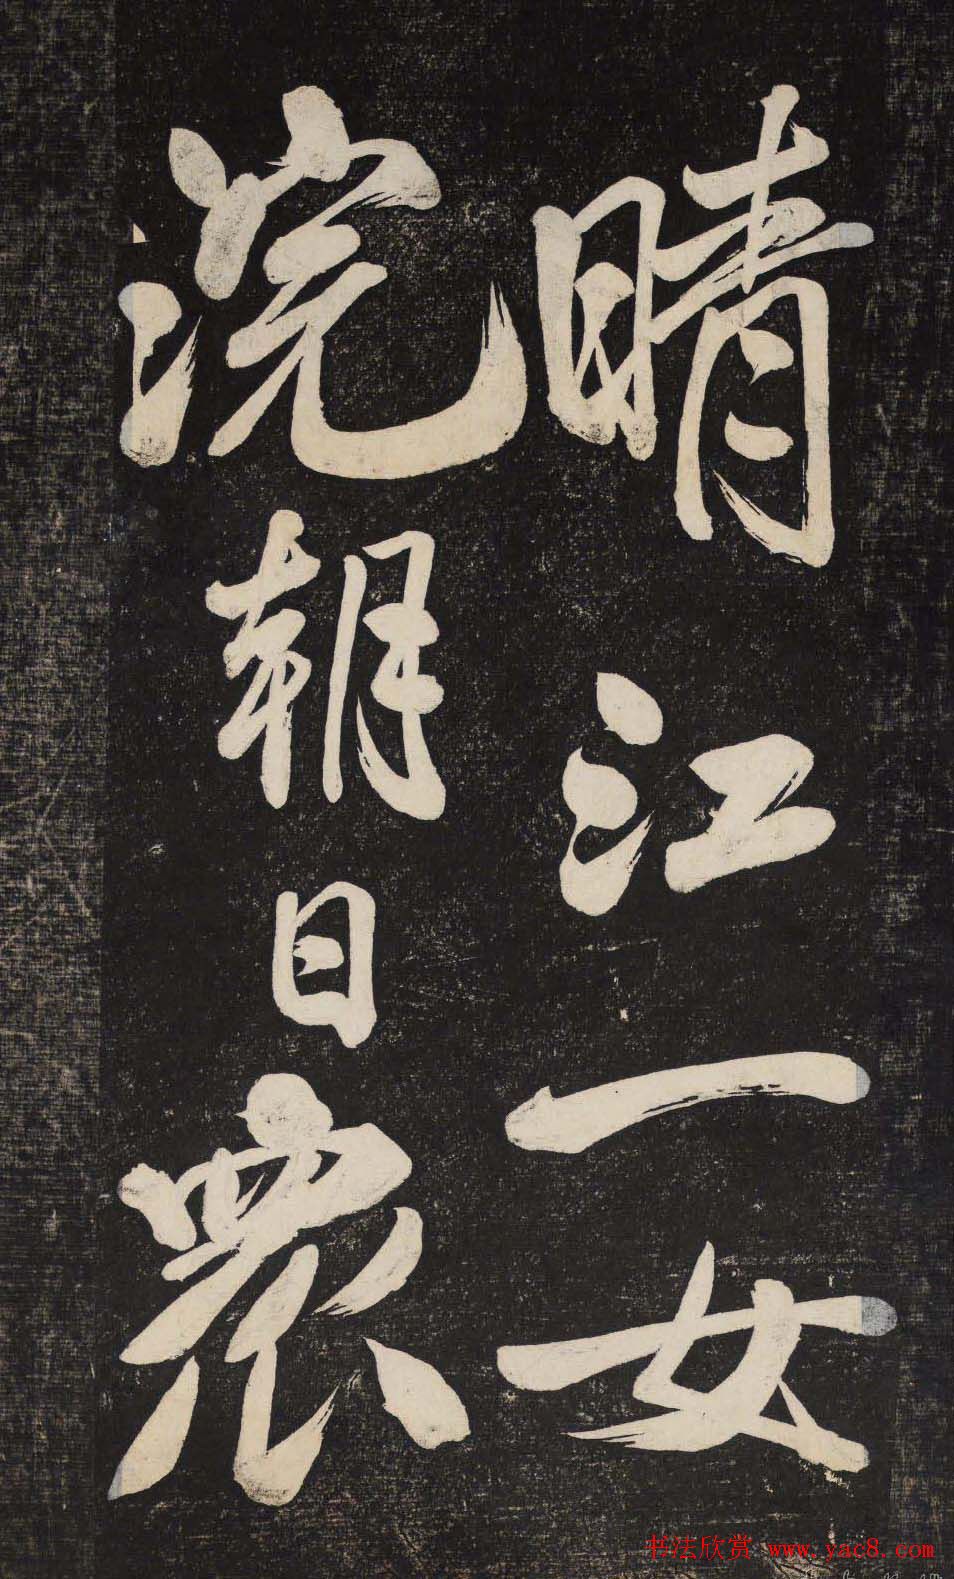 晴江一女
浣朝日衆
书法欣赏 www.yac8.com